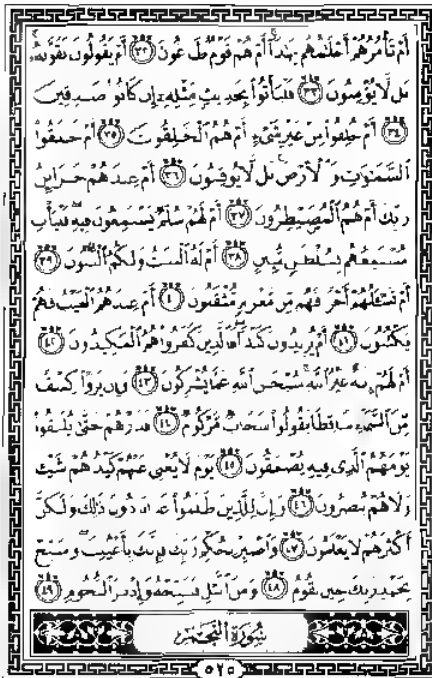 أَمْ تَأْمُرُهُمْ أَحْلَٰمُهُم بِهَٰذَآ أَمْ هُمْ قَوْمٌ طَاغُونَ ٣٢ أَمْ يَقُولُونَ تَقَوَّلَهُۥ
بَل لَّا يُؤْمِنُونَ ٣٣ فَلْيَأْتُوا۟ بِحَدِيثٍ مِّثْلِهِۦٓ إِن كَانُوا۟ صَٰدِقِينَ
٣٤ أَمْ خُلِقُوا۟ مِنْ غَيْرِ شَىْءٍ أَمْ هُمُ ٱلْخَٰلِقُونَ ٣٥ أَمْ خَلَقُوا۟
ٱلسَّمَٰوَٰتِ وَٱلْأَرْضَ بَل لَّا يُوقِنُونَ ٣٦ أَمْ عِندَهُمْ خَزَآئِنُ
رَبِّكَ أَمْ هُمُ ٱلْمُصَۣيْطِرُونَ ٣٧ أَمْ لَهُمْ سُلَّمٌ يَسْتَمِعُونَ فِيهِ فَلْيَأْتِ
مُسْتَمِعُهُم بِسُلْطَٰنٍ مُّبِينٍ ٣٨ أَمْ لَهُ ٱلْبَنَٰتُ وَلَكُمُ ٱلْبَنُونَ ٣٩
أَمْ تَسْـَٔلُهُمْ أَجْرًا فَهُم مِّن مَّغْرَمٍ مُّثْقَلُونَ ٤٠ أَمْ عِندَهُمُ ٱلْغَيْبُ فَهُمْ
يَكْتُبُونَ ٤١ أَمْ يُرِيدُونَ كَيْدًا فَٱلَّذِينَ كَفَرُوا۟ هُمُ ٱلْمَكِيدُونَ ٤٢
أَمْ لَهُمْ إِلَٰهٌ غَيْرُ ٱللَّهِ سُبْحَٰنَ ٱللَّهِ عَمَّا يُشْرِكُونَ ٤٣ وَإِن يَرَوْا۟ كِسْفًا
مِّنَ ٱلسَّمَآءِ سَاقِطًا يَقُولُوا۟ سَحَابٌ مَّرْكُومٌ ٤٤ فَذَرْهُمْ حَتَّىٰ يُلَٰقُوا۟
يَوْمَهُمُ ٱلَّذِى فِيهِ يُصْعَقُونَ ٤٥ يَوْمَ لَا يُغْنِى عَنْهُمْ كَيْدُهُمْ شَيْـًٔا
وَلَا هُمْ يُنصَرُونَ ٤٦ وَإِنَّ لِلَّذِينَ ظَلَمُوا۟ عَذَابًا دُونَ ذَٰلِكَ وَلَٰكِنَّ
أَكْثَرَهُمْ لَا يَعْلَمُونَ ٤٧ وَٱصْبِرْ لِحُكْمِ رَبِّكَ فَإِنَّكَ بِأَعْيُنِنَا وَسَبِّحْ
بِحَمْدِ رَبِّكَ حِينَ تَقُومُ ٤٨ وَمِنَ ٱلَّيْلِ فَسَبِّحْهُ وَإِدْبَٰرَ ٱلنُّجُومِ ٤٩
سُورَةُ النَّجْمِ
٥٢٥